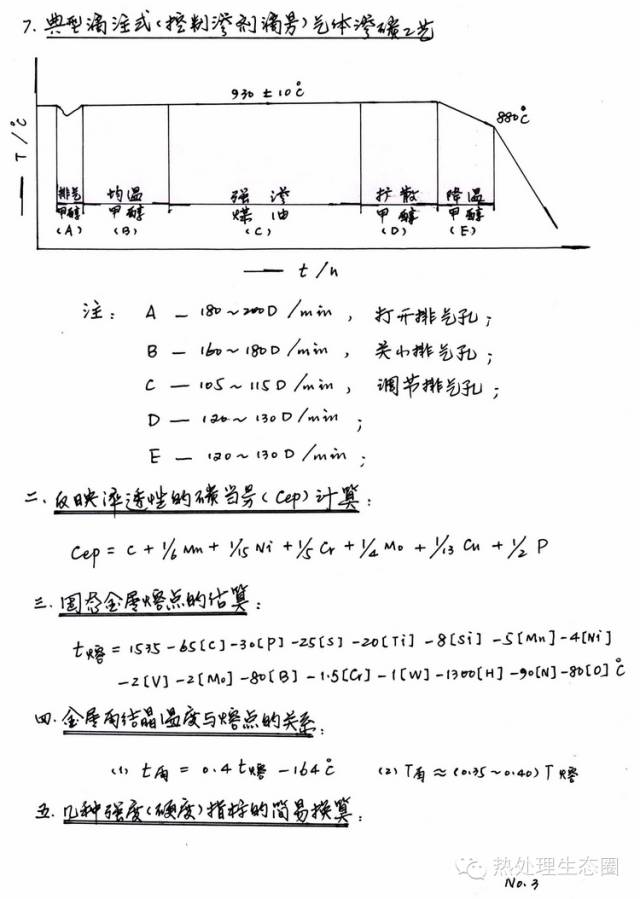 7. 典型滴注式(控制渗剂滴量)气体渗碳工艺
930 ± 10℃
880℃
T/℃
排气 均温 强渗 扩散 降温
甲醇 甲醇 煤油 甲醇 甲醇
(A) (B) (C) (D) (E)
t/h
注: A — 180~200D/min, 打开排气孔;
B — 160~180D/min, 关小排气孔;
C — 105~115D/min, 调节排气孔;
D — 120~130D/min;
E — 120~130D/min;
二. 反映淬透性的碳当量(Cep)计算:
Cep = C + 1/6 Mn + 1/15 Ni + 1/5 Cr + 1/4 Mo + 1/13 Cu + 1/2 P
三. 固态金属熔点的估算:
t熔 = 1535 - 65[C] - 30[P] - 25[S] - 20[Ti] - 8[Si] - 5[Mn] - 4[Ni]
- 2[V] - 2[Mo] - 80[B] - 1.5[Cr] - 1[W] - 1300[H] - 90[N] - 80[O] ℃
四. 金属再结晶温度与熔点的关系:
(1) t再 = 0.4 t熔 - 164℃ (2) T再 ≈ (0.35~0.40) T熔
五. 几种强度(硬度)指标的简易换算:
热处理生态圈
No. 3